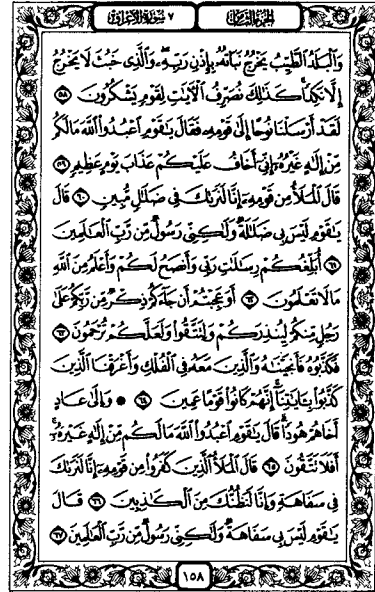 الجزء الثامن
٧ سورة الأعراف
وَٱلْبَلَدُ ٱلطَّيِّبُ يَخْرُجُ نَبَاتُهُۥ بِإِذْنِ رَبِّهِۦ وَٱلَّذِى خَبُثَ لَا يَخْرُجُ
إِلَّا نَكِدًا كَذَٰلِكَ نُصَرِّفُ ٱلْـَٔايَٰتِ لِقَوْمٍ يَشْكُرُونَ ٥٨
لَقَدْ أَرْسَلْنَا نُوحًا إِلَىٰ قَوْمِهِۦ فَقَالَ يَٰقَوْمِ ٱعْبُدُوا۟ ٱللَّهَ مَا لَكُم
مِّنْ إِلَٰهٍ غَيْرُهُۥٓ إِنِّىٓ أَخَافُ عَلَيْكُمْ عَذَابَ يَوْمٍ عَظِيمٍ ٥٩
قَالَ ٱلْمَلَأُ مِن قَوْمِهِۦٓ إِنَّا لَنَرَىٰكَ فِى ضَلَٰلٍ مُّبِينٍ ٦٠ قَالَ
يَٰقَوْمِ لَيْسَ بِى ضَلَٰلَةٌ وَلَٰكِنِّى رَسُولٌ مِّن رَّبِّ ٱلْعَٰلَمِينَ
٦١ أُبَلِّغُكُمْ رِسَٰلَٰتِ رَبِّى وَأَنصَحُ لَكُمْ وَأَعْلَمُ مِنَ ٱللَّهِ
مَا لَا تَعْلَمُونَ ٦٢ أَوَعَجِبْتُمْ أَن جَآءَكُمْ ذِكْرٌ مِّن رَّبِّكُمْ عَلَىٰ
رَجُلٍ مِّنكُمْ لِيُنذِرَكُمْ وَلِتَتَّقُوا۟ وَلَعَلَّكُمْ تُرْحَمُونَ ٦٣
فَكَذَّبُوهُ فَأَنجَيْنَٰهُ وَٱلَّذِينَ مَعَهُۥ فِى ٱلْفُلْكِ وَأَغْرَقْنَا ٱلَّذِينَ
كَذَّبُوا۟ بِـَٔايَٰتِنَآ إِنَّهُمْ كَانُوا۟ قَوْمًا عَمِينَ ٦٤ وَإِلَىٰ عَادٍ
أَخَاهُمْ هُودًا قَالَ يَٰقَوْمِ ٱعْبُدُوا۟ ٱللَّهَ مَا لَكُم مِّنْ إِلَٰهٍ غَيْرُهُۥٓ
أَفَلَا تَتَّقُونَ ٦٥ قَالَ ٱلْمَلَأُ ٱلَّذِينَ كَفَرُوا۟ مِن قَوْمِهِۦٓ إِنَّا لَنَرَىٰكَ
فِى سَفَاهَةٍ وَإِنَّا لَنَظُنُّكَ مِنَ ٱلْكَٰذِبِينَ ٦٦ قَالَ
يَٰقَوْمِ لَيْسَ بِى سَفَاهَةٌ وَلَٰكِنِّى رَسُولٌ مِّن رَّبِّ ٱلْعَٰلَمِينَ ٦٧
١٥٨